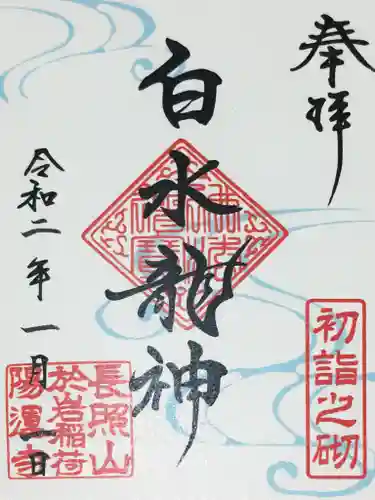 奉拝
白水龍神
令和二年一月一日
初詣之砌
長照山
於岩稲荷
陽運寺